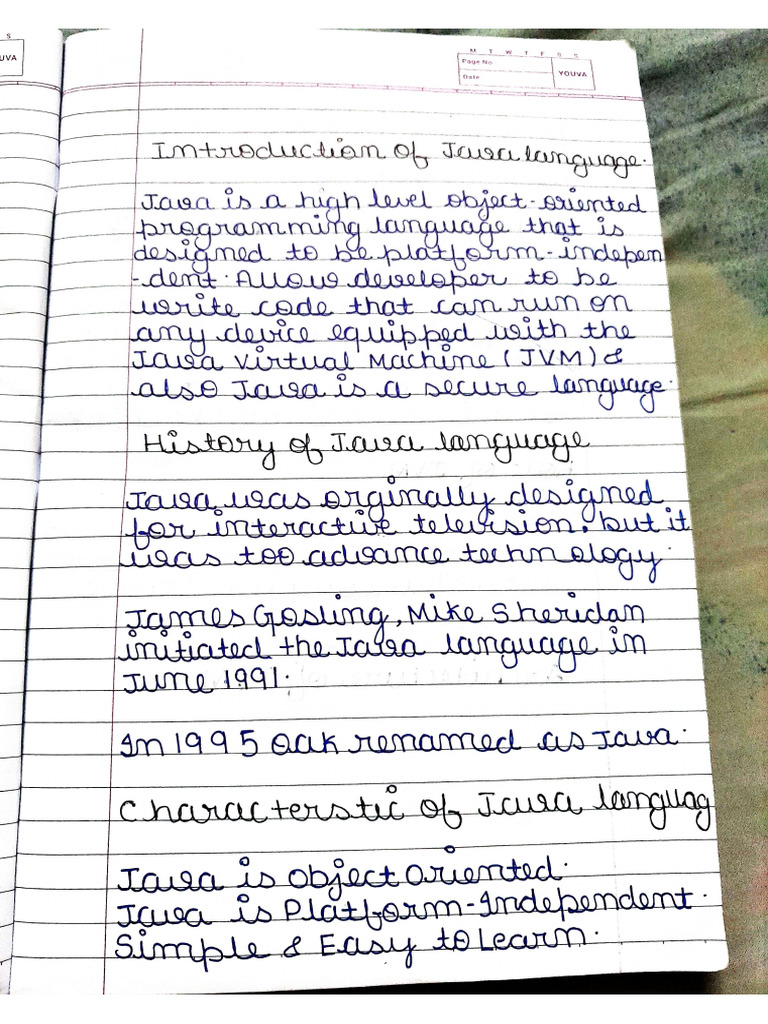 S
UVA
M T W T F S S
Page No
Date
YOUVA
Introduction of Java language.
Java is a high level object-oriented
programming language that is
designed to be platform-indepen
-dent. Allows developer to be
write code that can run on
any device equipped with the
Java Virtual Machine (JVM) &
also Java is a secure language.
History of Java language
Java was orginally designed
for interactive television, but it
was too advance technology.
James Gosling, Mike Sheridan
initiated the Java language in
June 1991.
In 1995 Oak renamed as Java.
Characterstic of Java languag
Java is object oriented.
Java is Platform-Independent.
Simple & Easy to Learn.